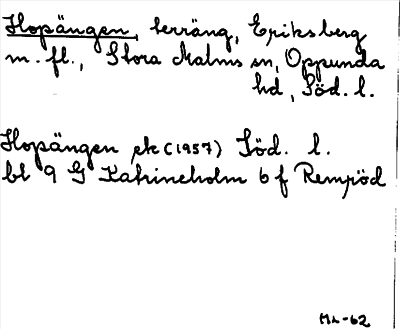 Hopängen, terräng, Eriksberg
m. fl., Stora Malms sn, Oppunda
hd, Söd. l.
Hopängen ek (1957) Söd. l.
bl 9 G Katrineholm 6 f Rempöd